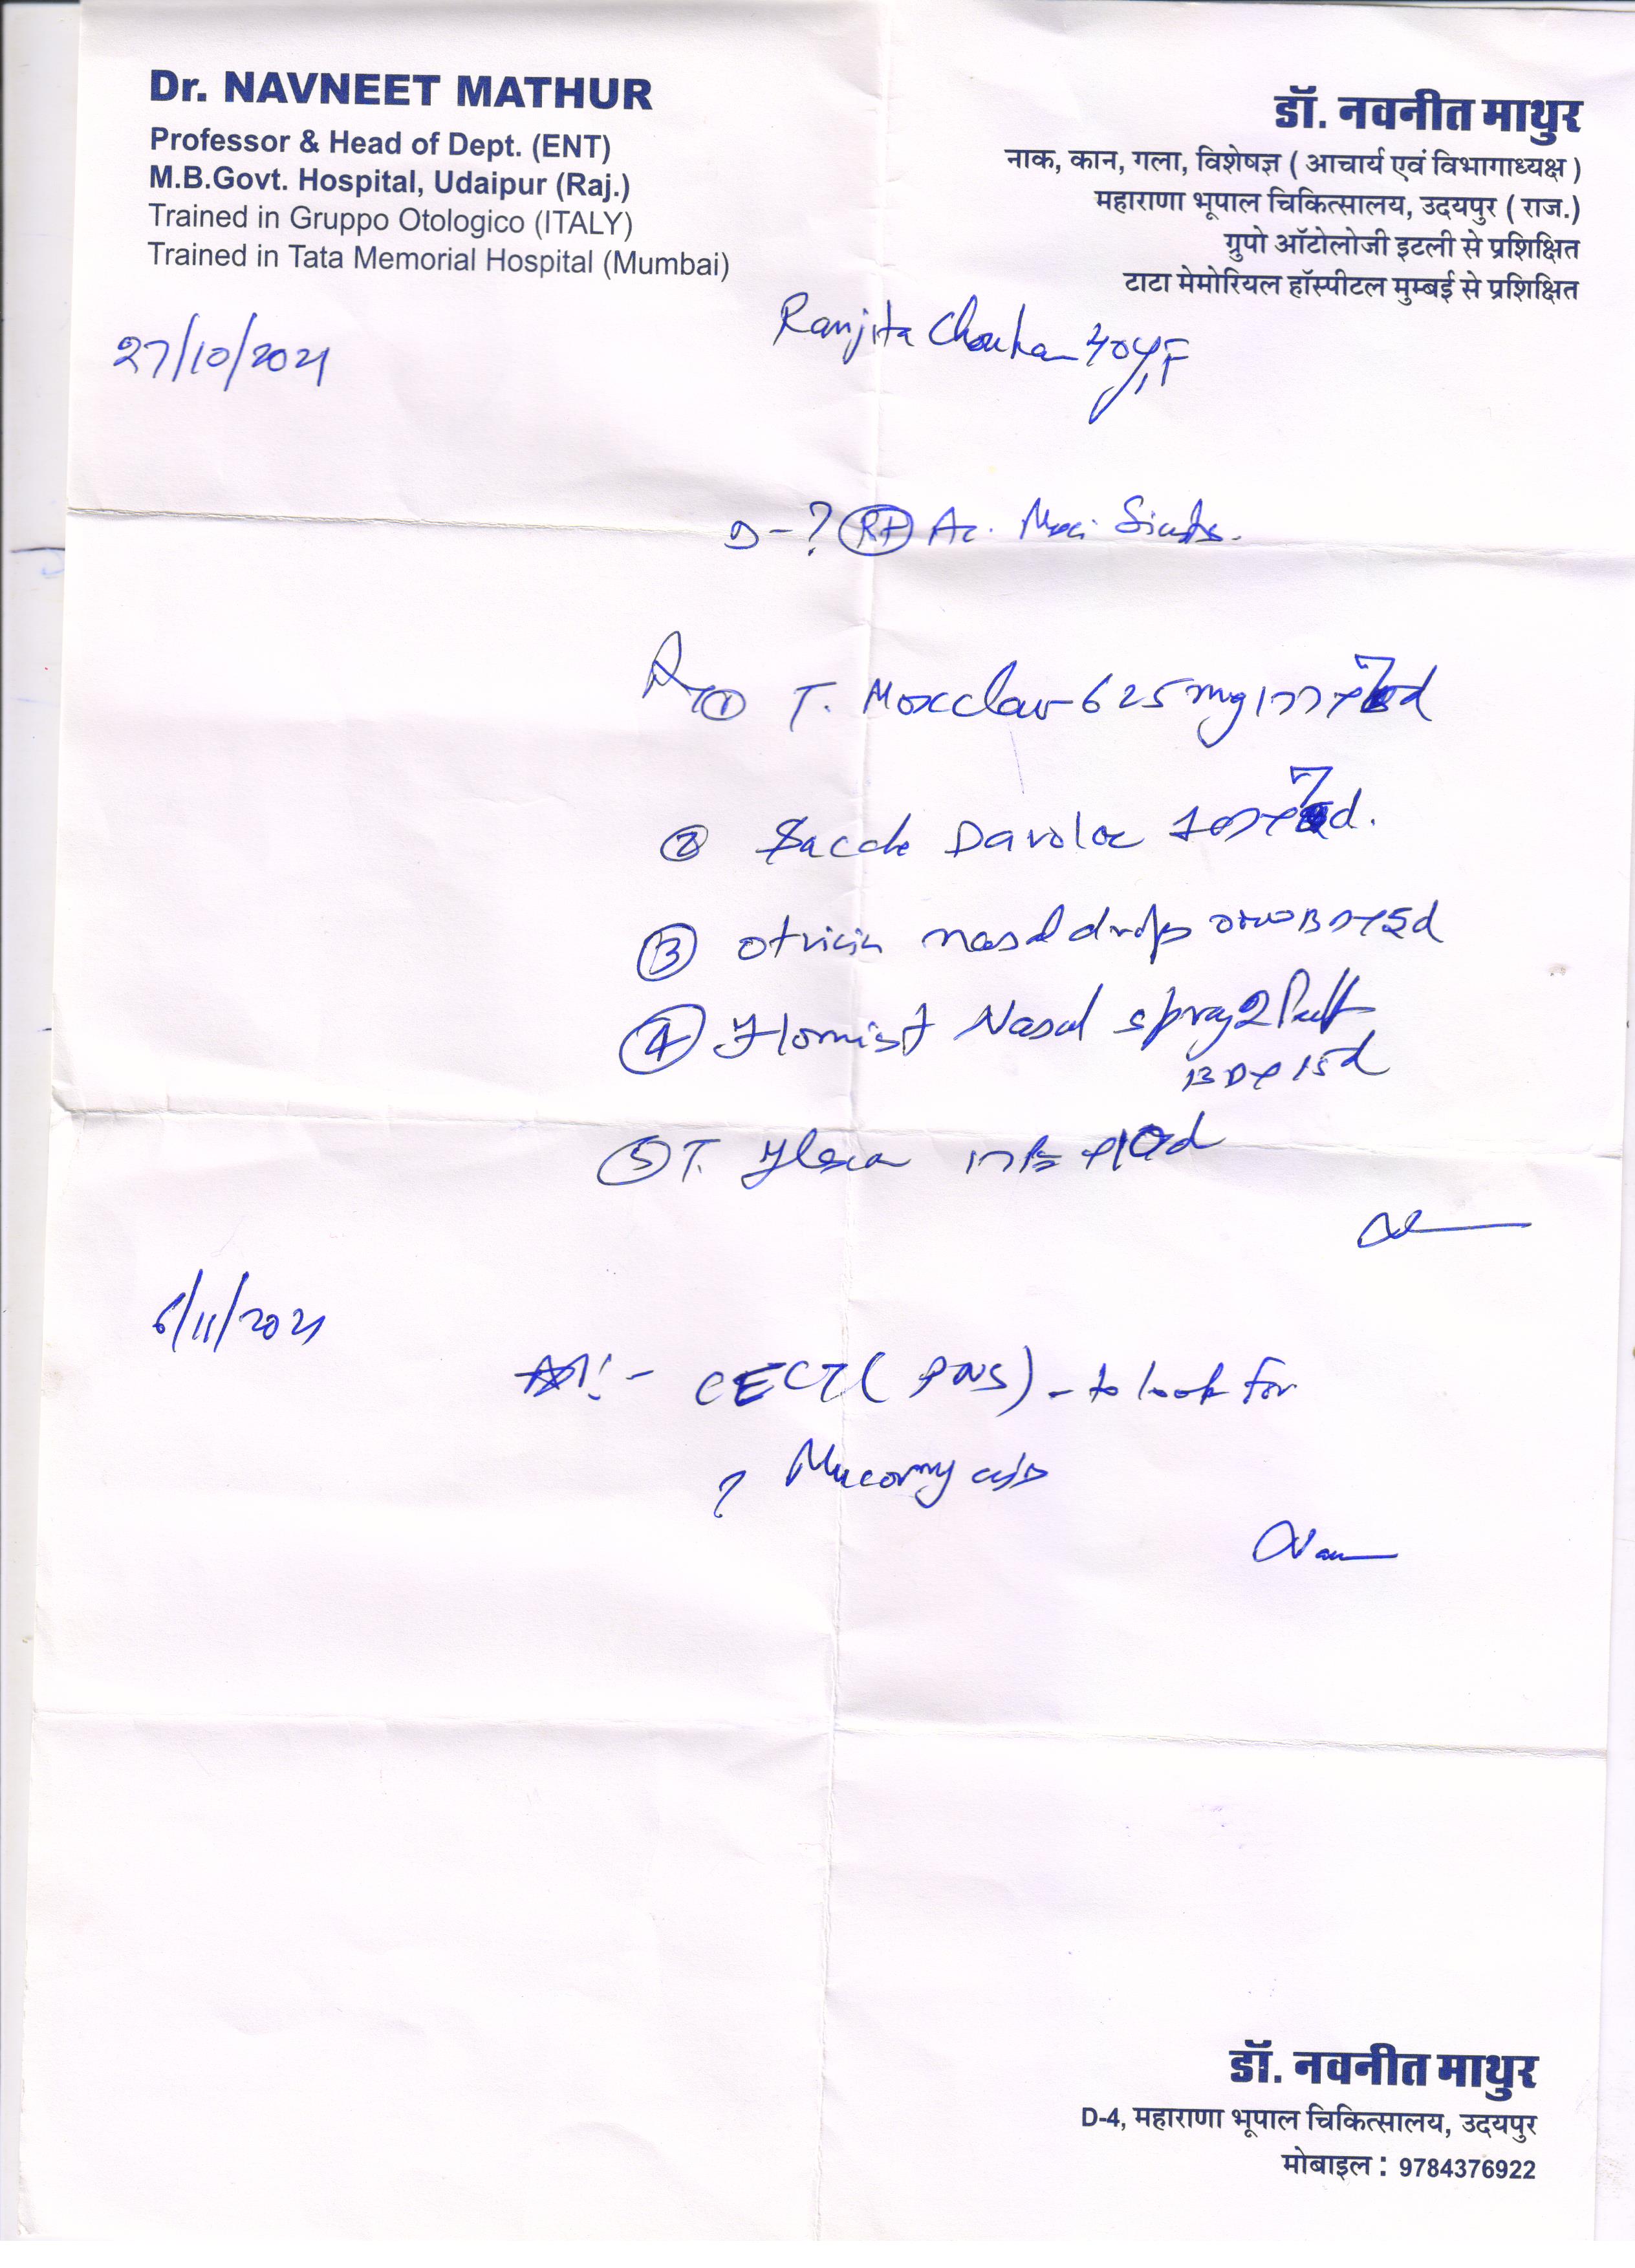 Dr. NAVNEET MATHUR
Professor & Head of Dept. (ENT)
M.B.Govt. Hospital, Udaipur (Raj.)
Trained in Gruppo Otologico (ITALY)
Trained in Tata Memorial Hospital (Mumbai)
डॉ. नवनीत माथुर
नाक, कान, गला, विशेषज्ञ ( आचार्य एवं विभागाध्यक्ष )
महाराणा भूपाल चिकित्सालय, उदयपुर ( राज.)
ग्रुपो ऑटोलोजी इटली से प्रशिक्षित
टाटा मेमोरियल हॉस्पीटल मुम्बई से प्रशिक्षित
27/10/2021
Ranjita Chouhan 40y,F
D-? Rt Ac.
① T. Moxclav-625mg 7d
② 7d.
③ otrivin nasal drops 5d
④ Flomist Nasal spray 2 Puff
BD x 15d
⑤ T. 10d
6/11/2021
CECT ( PNS ) - to look for
? Mucormycosis
डॉ. नवनीत माथुर
D-4, महाराणा भूपाल चिकित्सालय, उदयपुर
मोबाइल : 9784376922